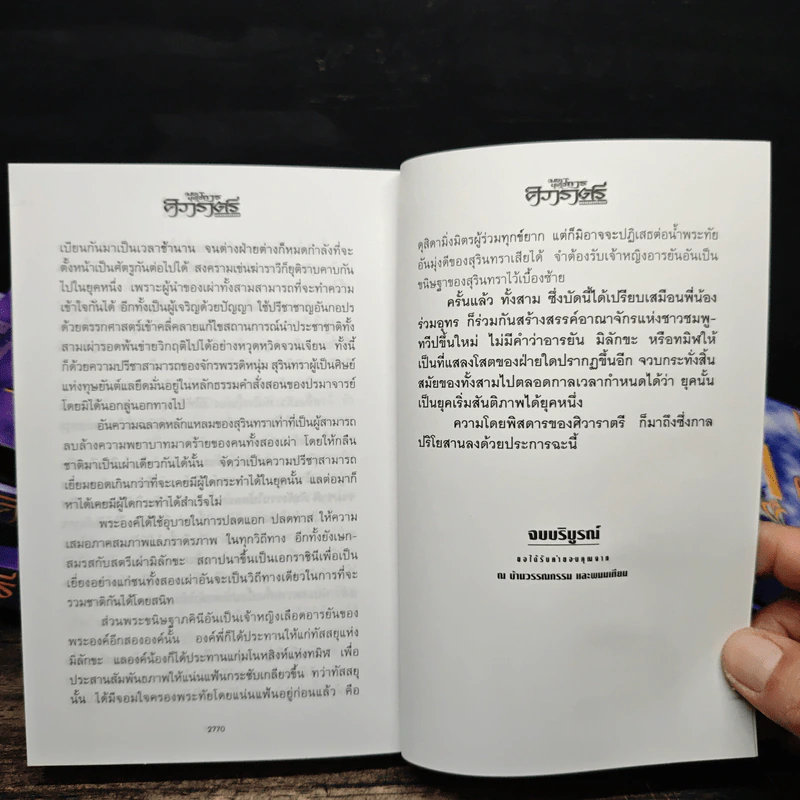 ศิวาราตรี
เบียนกันมาเป็นเวลาช้านาน จนต่างฝ่ายต่างก็หมดกำลังที่จะ
ตั้งหน้าเป็นศัตรูกันต่อไปได้ สงครามเช่นฆ่าราวีก็ยุติราบคาบกัน
ไปในยุคหนึ่ง เพราะผู้นำของเผ่าทั้งสามสามารถที่จะทำความ
เข้าใจกันได้ อีกทั้งเป็นผู้เจริญด้วยปัญญา ใช้ปรีชาชาญอันกอปร
ด้วยตรรกศาสตร์เข้าคลี่คลายแก้ไขสถานการณ์นำประชาชาติทั้ง
สามเผ่ารอดพ้นข่ายวิกฤติไปได้อย่างหวุดหวิดจวนเจียน ทั้งนี้
ก็ด้วยความปรีชาสามารถของจักรพรรดิหนุ่ม สุรินทราผู้เป็นศิษย์
แห่งทุษยันต์แลยึดมั่นอยู่ในหลักธรรมคำสั่งสอนของปรมาจารย์
โดยมิได้นอกลู่นอกทางไป
อันความฉลาดหลักแหลมของสุรินทราเท่าที่เป็นผู้สามารถ
ลบล้างความพยาบาทมาดร้ายของคนทั้งสองเผ่า โดยให้กลืน
ชาติมาเป็นเผ่าเดียวกันได้นั้น จัดว่าเป็นความปรีชาสามารถ
เยี่ยมยอดเกินกว่าที่จะเคยมีผู้ใดกระทำได้ในยุคนั้น แลต่อมาก็
หาได้เคยมีผู้ใดกระทำได้สำเร็จไม่
พระองค์ได้ใช้อุบายในการปลดแอก ปลดทาส ให้ความ
เสมอภาคสมภาพแลภราดรภาพ ในทุกวิถีทาง อีกทั้งยังเษก-
สมรสกับสตรีเผ่ามิลักขะ สถาปนาขึ้นเป็นเอกราชินีเพื่อเป็น
เยี่ยงอย่างแก่ชนทั้งสองเผ่าอันจะเป็นวิถีทางเดียวในการที่จะ
รวมชาติกันได้โดยสนิท
ส่วนพระขนิษฐาภคินีอันเป็นเจ้าหญิงเลือดอารยันของ
พระองค์อีกสององค์นั้น องค์พี่ก็ได้ประทานให้แก่ทัสสยุแห่ง
มิลักขะ แลองค์น้องก็ได้ประทานแก่มโนหสิงห์แห่งทมิฬ เพื่อ
ประสานสัมพันธภาพให้แน่นแฟ้นกระชับเกลียวขึ้น ทว่าทัสสยุ
นั้น ได้มีจอมใจครองพระทัยโดยแน่นแฟ้นอยู่ก่อนแล้ว คือ
2770
ศิวาราตรี
ดุสิตามิ่งมิตรผู้ร่วมทุกข์ยาก แต่ก็มิอาจจะปฏิเสธต่อน้ำพระทัย
อันมุ่งดีของสุรินทราเสียได้ จำต้องรับเจ้าหญิงอารยันอันเป็น
ขนิษฐาของสุรินทราไว้เบื้องซ้าย
ครั้นแล้ว ทั้งสาม ซึ่งบัดนี้ได้เปรียบเสมือนพี่น้อง
ร่วมอุทร ก็ร่วมกันสร้างสรรค์อาณาจักรแห่งชาวชมพู-
ทวีปขึ้นใหม่ ไม่มีคำว่าอารยัน มิลักขะ หรือทมิฬให้
เป็นที่แสลงโสตของฝ่ายใดปรากฏขึ้นอีก จวบกระทั่งสิ้น
สมัยของทั้งสามไปตลอดกาลเวลากำหนดได้ว่า ยุคนั้น
เป็นยุคเริ่มสันติภาพได้ยุคหนึ่ง
ความโดยพิสดารของศิวาราตรี ก็มาถึงซึ่งกาล
ปริโยสานลงด้วยประการฉะนี้
จบบริบูรณ์
ขอได้รับคำขอบคุณจาก
ณ บ้านวรรณกรรม และพนมเทียน